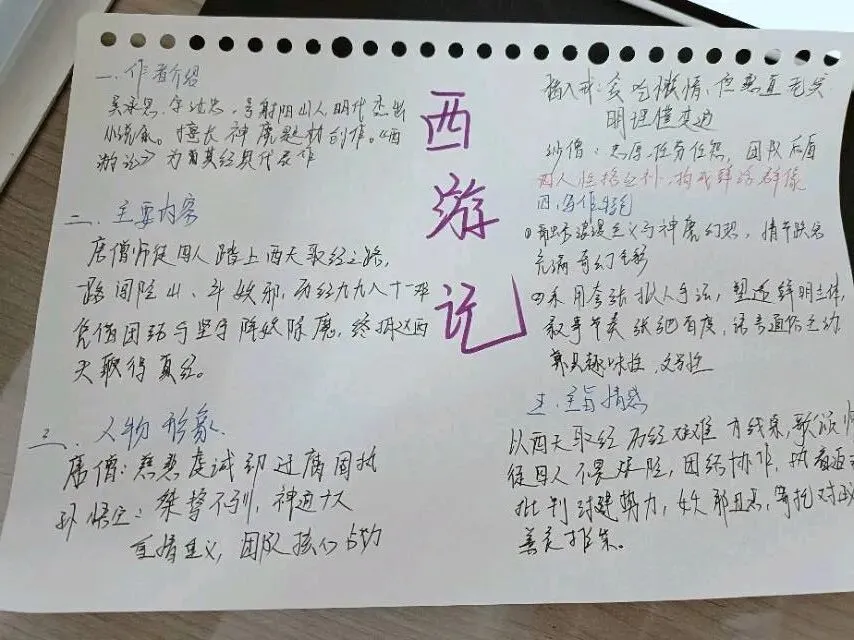 一、作者介绍
吴承恩,字汝忠,号射阳山人,明代杰出
小说家。擅长神魔题材创作。《西
游记》为其经典代表作
二、主要内容
唐僧师徒四人踏上西天取经之路,
一路闯险山、斗妖邪,历经九九八十一难
凭借团结与坚守降妖除魔,终抵达西
天取得真经。
三、人物形象
唐僧:慈悲虔诚却迂腐固执
孙悟空:桀骜不驯,神通广大
重情重义,团队核心
西游记
贪吃懒惰,但憨直
明理懂变通
沙僧:忠厚任劳任怨,团队后盾
四人性格互补,构成鲜活群像
四、写作特色
浪漫主义与神魔幻想,情节跌宕
充满奇幻色彩
采用夸张拟人手法,塑造鲜明主体,
叙事节奏张弛有度,语言通俗生动
兼具趣味性,文学性
五、主旨情感
以西天取经历经难为线索,歌颂师
徒四人不畏艰险,团结协作,执着追
批判封建势力,妖邪丑恶,寄托对
善良